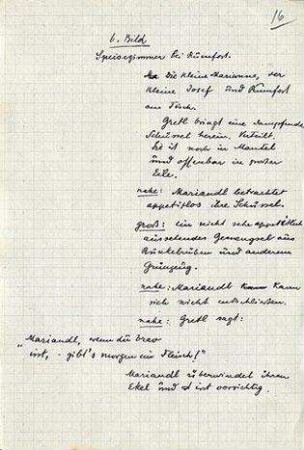 16
6. Bild
Speisezimmer bei Rumfort.
Die kleine Marianne, der
kleine Josef und Rumfort
am Tisch.
Gretl bringt eine dampfende
Schüssel herein. Verteilt.
Sie ist noch im Mantel
und offenbar in großer
Eile.
nahe: Mariandl betrachtet
appetitlos ihre Schüssel.
groß: ein nicht sehr appetitlich
aussehendes Gemengsel aus
Runkelrüben und anderem
Grünzeug.
nahe: Mariandl kann
sich nicht entschließen.
nahe: Gretl sagt:
"Mariandl, wenn du brav
isst, - gibt's morgen ein Fleisch!"
Mariandl überwindet ihren
Ekel und isst vorsichtig.